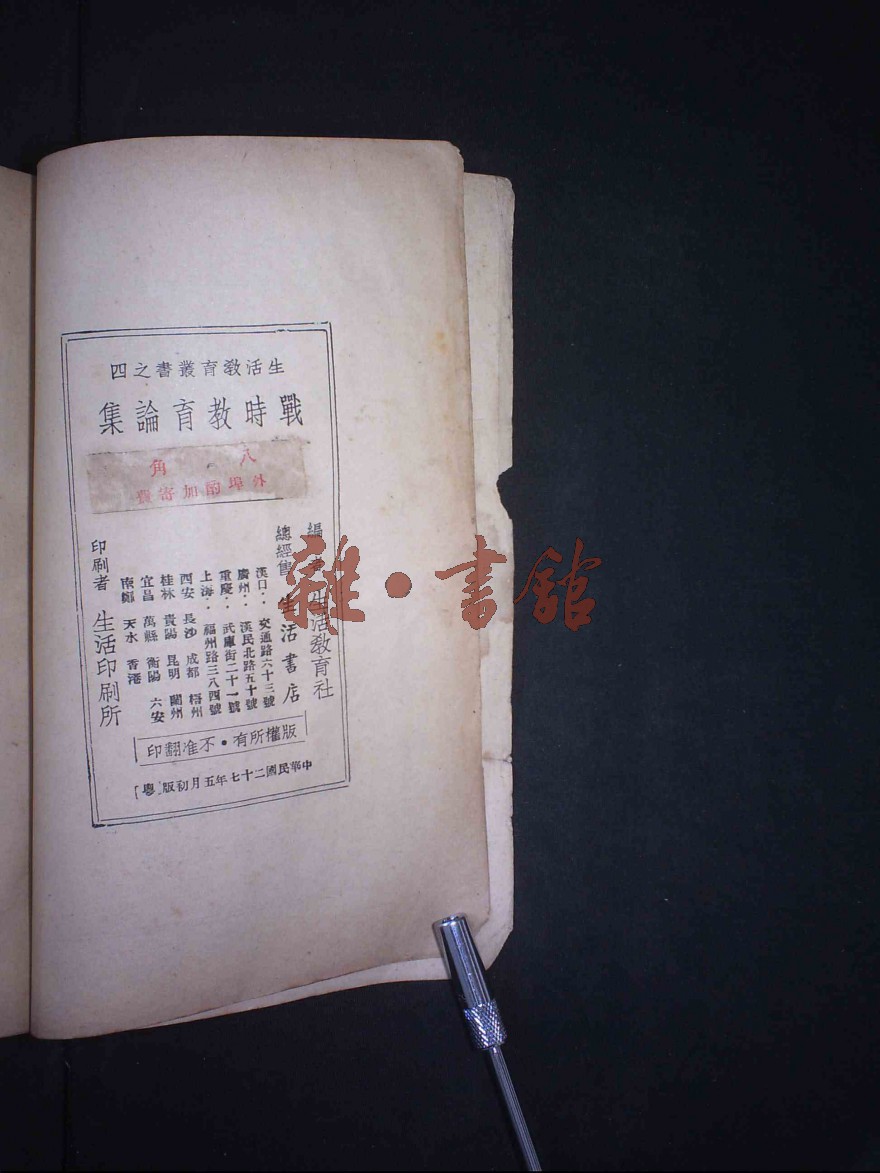 生活教育叢書之四
戰時教育論集
八角
外埠酌加寄費
編者 生活教育社
總經售 生活書店
漢口：交通路六十三號
廣州：漢民北路五十號
重慶：武庫街二十一號
上海：福州路三八四號
西安 長沙 成都 梧州
桂林 貴陽 昆明 蘭州
宜昌 萬縣 衡陽 六安
南鄭 天水 香港
印刷者 生活印刷所
版權所有・不准翻印
中華民國二十七年五月初版［粵］
雜・書館